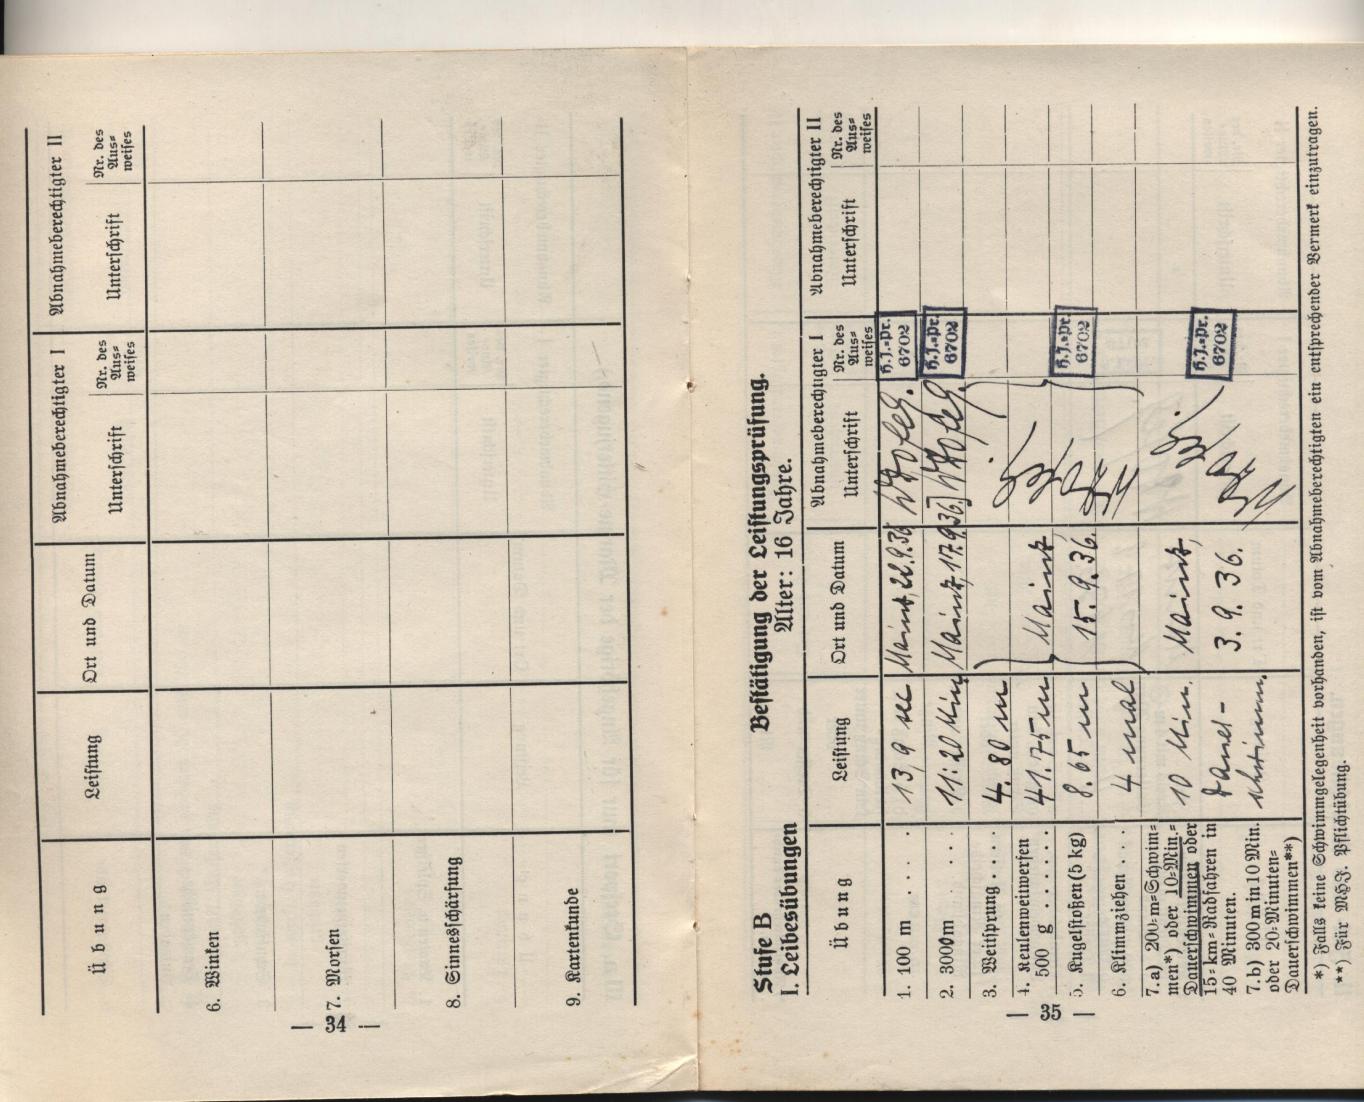 Abnahmeberechtigter I
Abnahmeberechtigter II
Übung
Leistung
Ort und Datum
Unterschrift
Nr. des
Aus=
weises
Unterschrift
Nr. des
Aus=
weises
6. Winken
7. Morsen
8. Sinnesschärfung
9. Kartenkunde
— 34 —
Stufe B
Bestätigung der Leistungsprüfung.
I. Leibesübungen
Alter: 16 Jahre.
Abnahmeberechtigter I
Abnahmeberechtigter II
Übung
Leistung
Ort und Datum
Unterschrift
Nr. des
Aus=
weises
Unterschrift
Nr. des
Aus=
weises
1. 100 m . . . .
13,9 sec
Mainz, 22.9.36
H.J.=Pr.
6702
2. 3000m . . .
11:20 Min
Mainz, 17.9.36.
H.J.=Pr.
6702
3. Weitsprung . . . .
4. 80 m
4. Keulenweitwerfen
500 g . . . . . . .
41.75 m
Mainz
5. Kugelstoßen (5 kg)
8.65 m
15. 9. 36.
H.J.=Pr.
6702
6. Klimmziehen . . .
4 mal
7. a) 200=m=Schwim=
men*) oder 10=Min.=
Dauerschwimmen oder
15=km=Radfahren in
40 Minuten.
7. b) 300 m in 10 Min.
oder 20=Minuten=
Dauerschwimmen**)
10 Min.
Dauer-
schwimm.
Mainz,
3. 9. 36.
H.J.=Pr.
6702
*) Falls keine Schwimmgelegenheit vorhanden, ist vom Abnahmeberechtigten ein entsprechender Vermerk einzutragen.
**) Für MHJ. Pflichtübung.
— 35 —